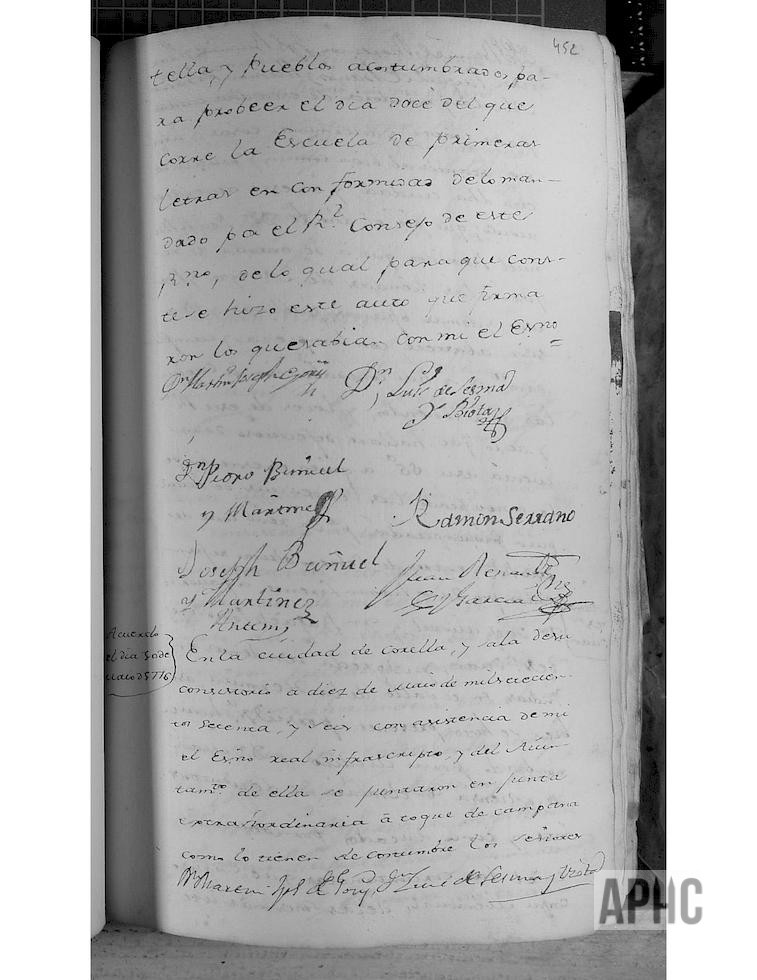 452
tella, y Pueblos acostumbrados, pa-
ra probeer el dia doce del que
corre la Escuela de primeras
letras en conformidad de lo man-
dado por el Rl. Consejo de este
Rno, de lo qual para que cons-
te se hizo este auto que firma
ron los que sabian con mi el Esno
Dn Martin Joseph
Dn Luis de Sesma
y Biota
Dn Pedro Buñuel
y Martinez
Ramon Serrano
Joseph Buñuel
y Martinez
Juan
y Garcia
Antemi
Acuerdo
el dia 10 de
Maio d 1776
En la ciudad de Corella, y sala de su
consistorio a diez de Maio de mil setecien-
tos setenta, y seis con asistencia de mi
el Esno real infrascripto, y del Aiun-
tamto de ella se juntaron en junta
extrahordinaria à toque de campana
como lo tienen de costumbre los señores
Dn Martin Jph de Goñi, Dn Luis de Sesma y Biota
APHC